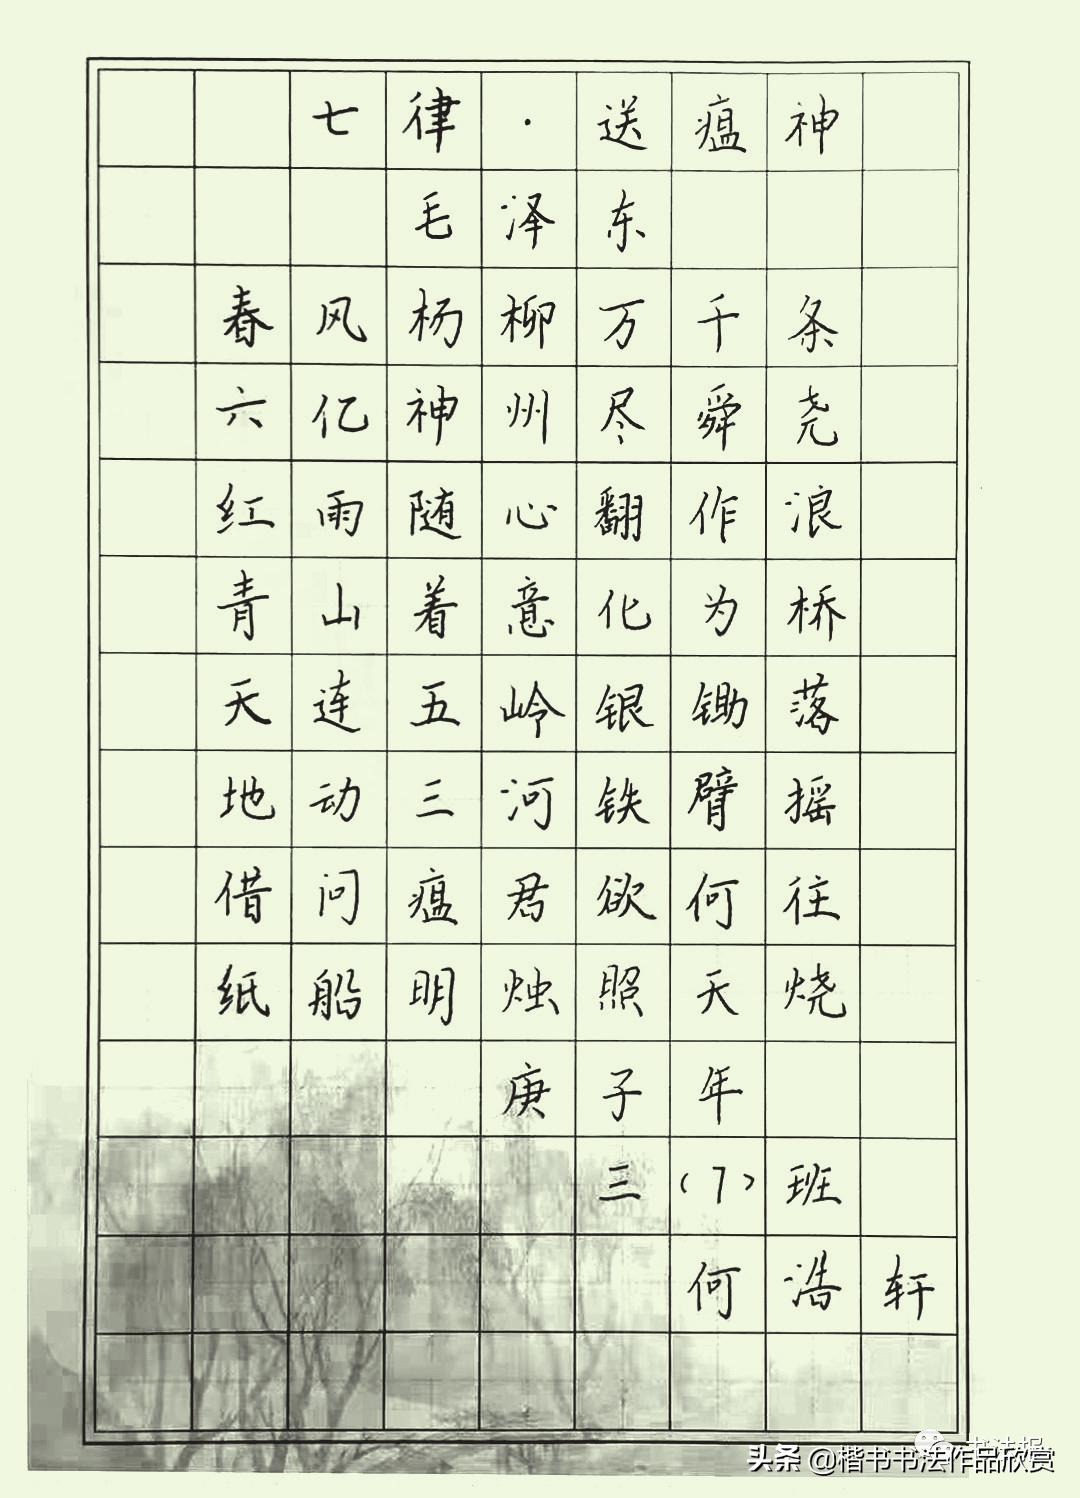 七律·送瘟神
毛泽东
春风杨柳万千条
六亿神州尽舜尧
红雨随心翻作浪
青山着意化为桥
天连五岭银锄落
地动三河铁臂摇
借问瘟君欲何往
纸船明烛照天烧
庚子年
三(7)班
何浩轩
书法报
头条@楷书书法作品欣赏